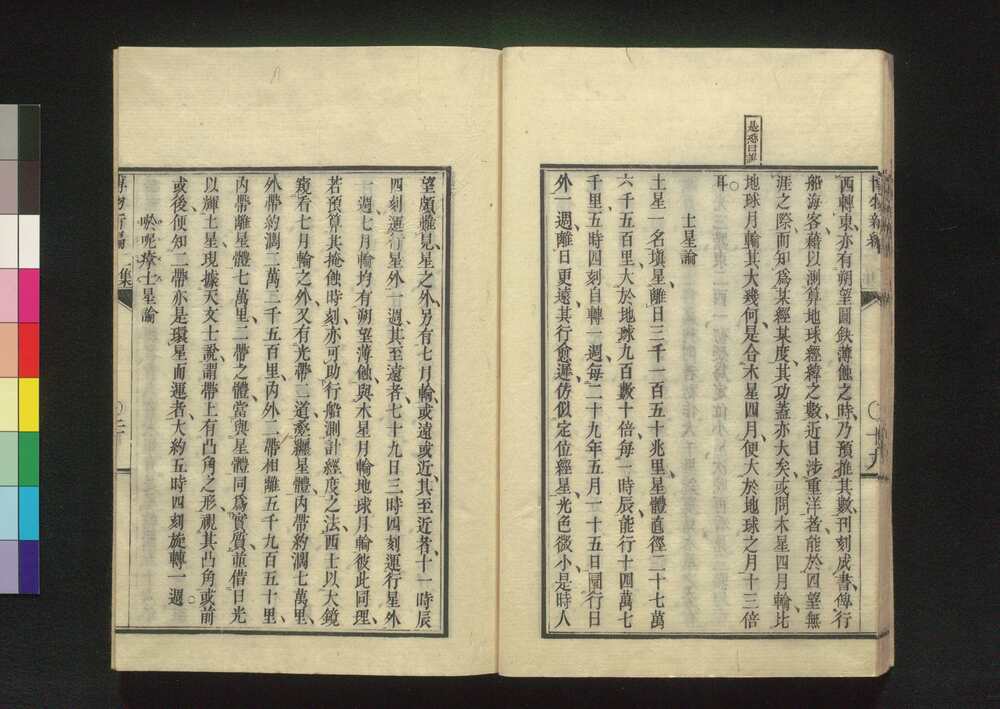 西轉東亦有朔望圓缺薄蝕之時乃預推其數刊刻成書俾行
船海客藉以測算地球經緯之數近日涉重洋者能於四望無
涯之際而知爲某經某度其功蓋亦大矣或問木星四月輪比
地球月輪其大幾何是合木星四月便大於地球之月十三倍
耳
土星論
土星一名塡星離日三千一百五十兆里星體直徑二十七萬
六千五百里大於地球九百數十倍每一時辰能行十四萬七
千里五時四刻自轉一週每二十九年五月一十五日圜行日
外一週離日更遠其行愈遲仿似定位經星光色微小是時人
望頗難見星之外另有七月輪或遠或近其至近者十一時辰
四刻運行星外一週其至遠者七十九日三時四刻運行星外
一週七月輪均有朔望薄蝕與木星月輪地球月輪彼此同理
若預算其掩蝕時刻亦可助行船測計經度之法西士以大鏡
窺看七月輪之外又有光帶二道繞纏星體內帶約濶七萬里
外帶約濶二萬二千五百里內外二帶相離五千九百五十里
內帶離星體七萬里二帶之體當與星體同爲實質並借日光
以輝土星現據天文士說謂帶上有凸角之形視其凸角或前
或後便知二帶亦是環星而運者大約五時四刻旋轉一週
呢士星論
二集